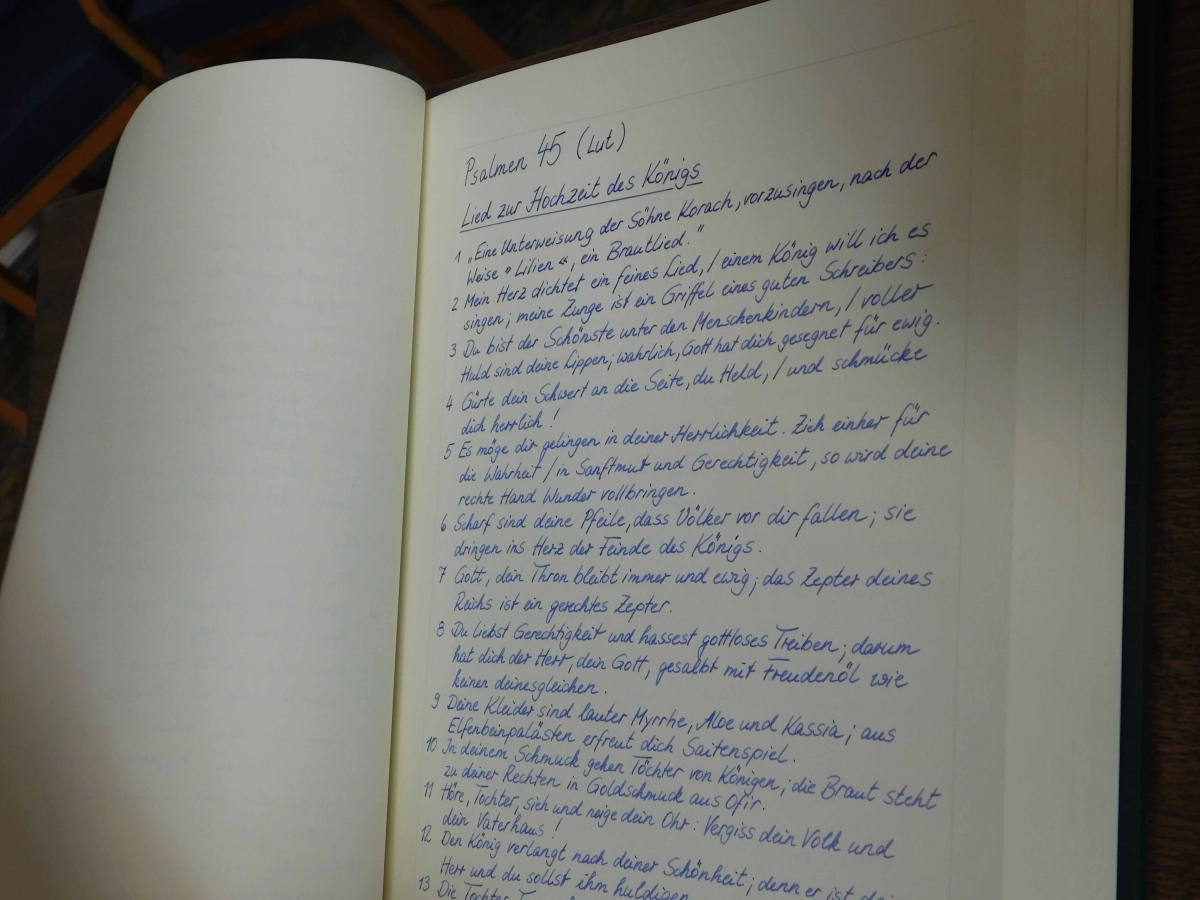 Psalmen 45 (Lut)
Lied zur Hochzeit des Königs
1 „Eine Unterweisung der Söhne Korach, vorzusingen, nach der
Weise »Lilien«, ein Brautlied."
2 Mein Herz dichtet ein feines Lied, / einem König will ich es
singen; meine Zunge ist ein Griffel eines guten Schreibers:
3 Du bist der Schönste unter den Menschenkindern, / voller
Huld sind deine Lippen; wahrlich, Gott hat dich gesegnet für ewig.
4 Gürte dein Schwert an die Seite, du Held, / und schmücke
dich herrlich!
5 Es möge dir gelingen in deiner Herrlichkeit. Zieh einher für
die Wahrheit / in Sanftmut und Gerechtigkeit, so wird deine
rechte Hand Wunder vollbringen.
6 Scharf sind deine Pfeile, dass Völker vor dir fallen; sie
dringen ins Herz der Feinde des Königs.
7 Gott, dein Thron bleibt immer und ewig; das Zepter deines
Reichs ist ein gerechtes Zepter.
8 Du liebst Gerechtigkeit und hassest gottloses Treiben; darum
hat dich der Herr, dein Gott, gesalbt mit Freudenöl wie
keinen deinesgleichen.
9 Deine Kleider sind lauter Myrrhe, Aloe und Kassia; aus
Elfenbeinpalästen erfreut dich Saitenspiel.
10 In deinem Schmuck gehen Töchter von Königen; die Braut steht
zu deiner Rechten in Goldschmuck aus Ofir.
11 Höre, Tochter, sieh und neige dein Ohr: Vergiss dein Volk und
dein Vaterhaus!
12 Den König verlangt nach deiner Schönheit; denn er ist
Herr und du sollst ihm huldigen
13 Die Tochter